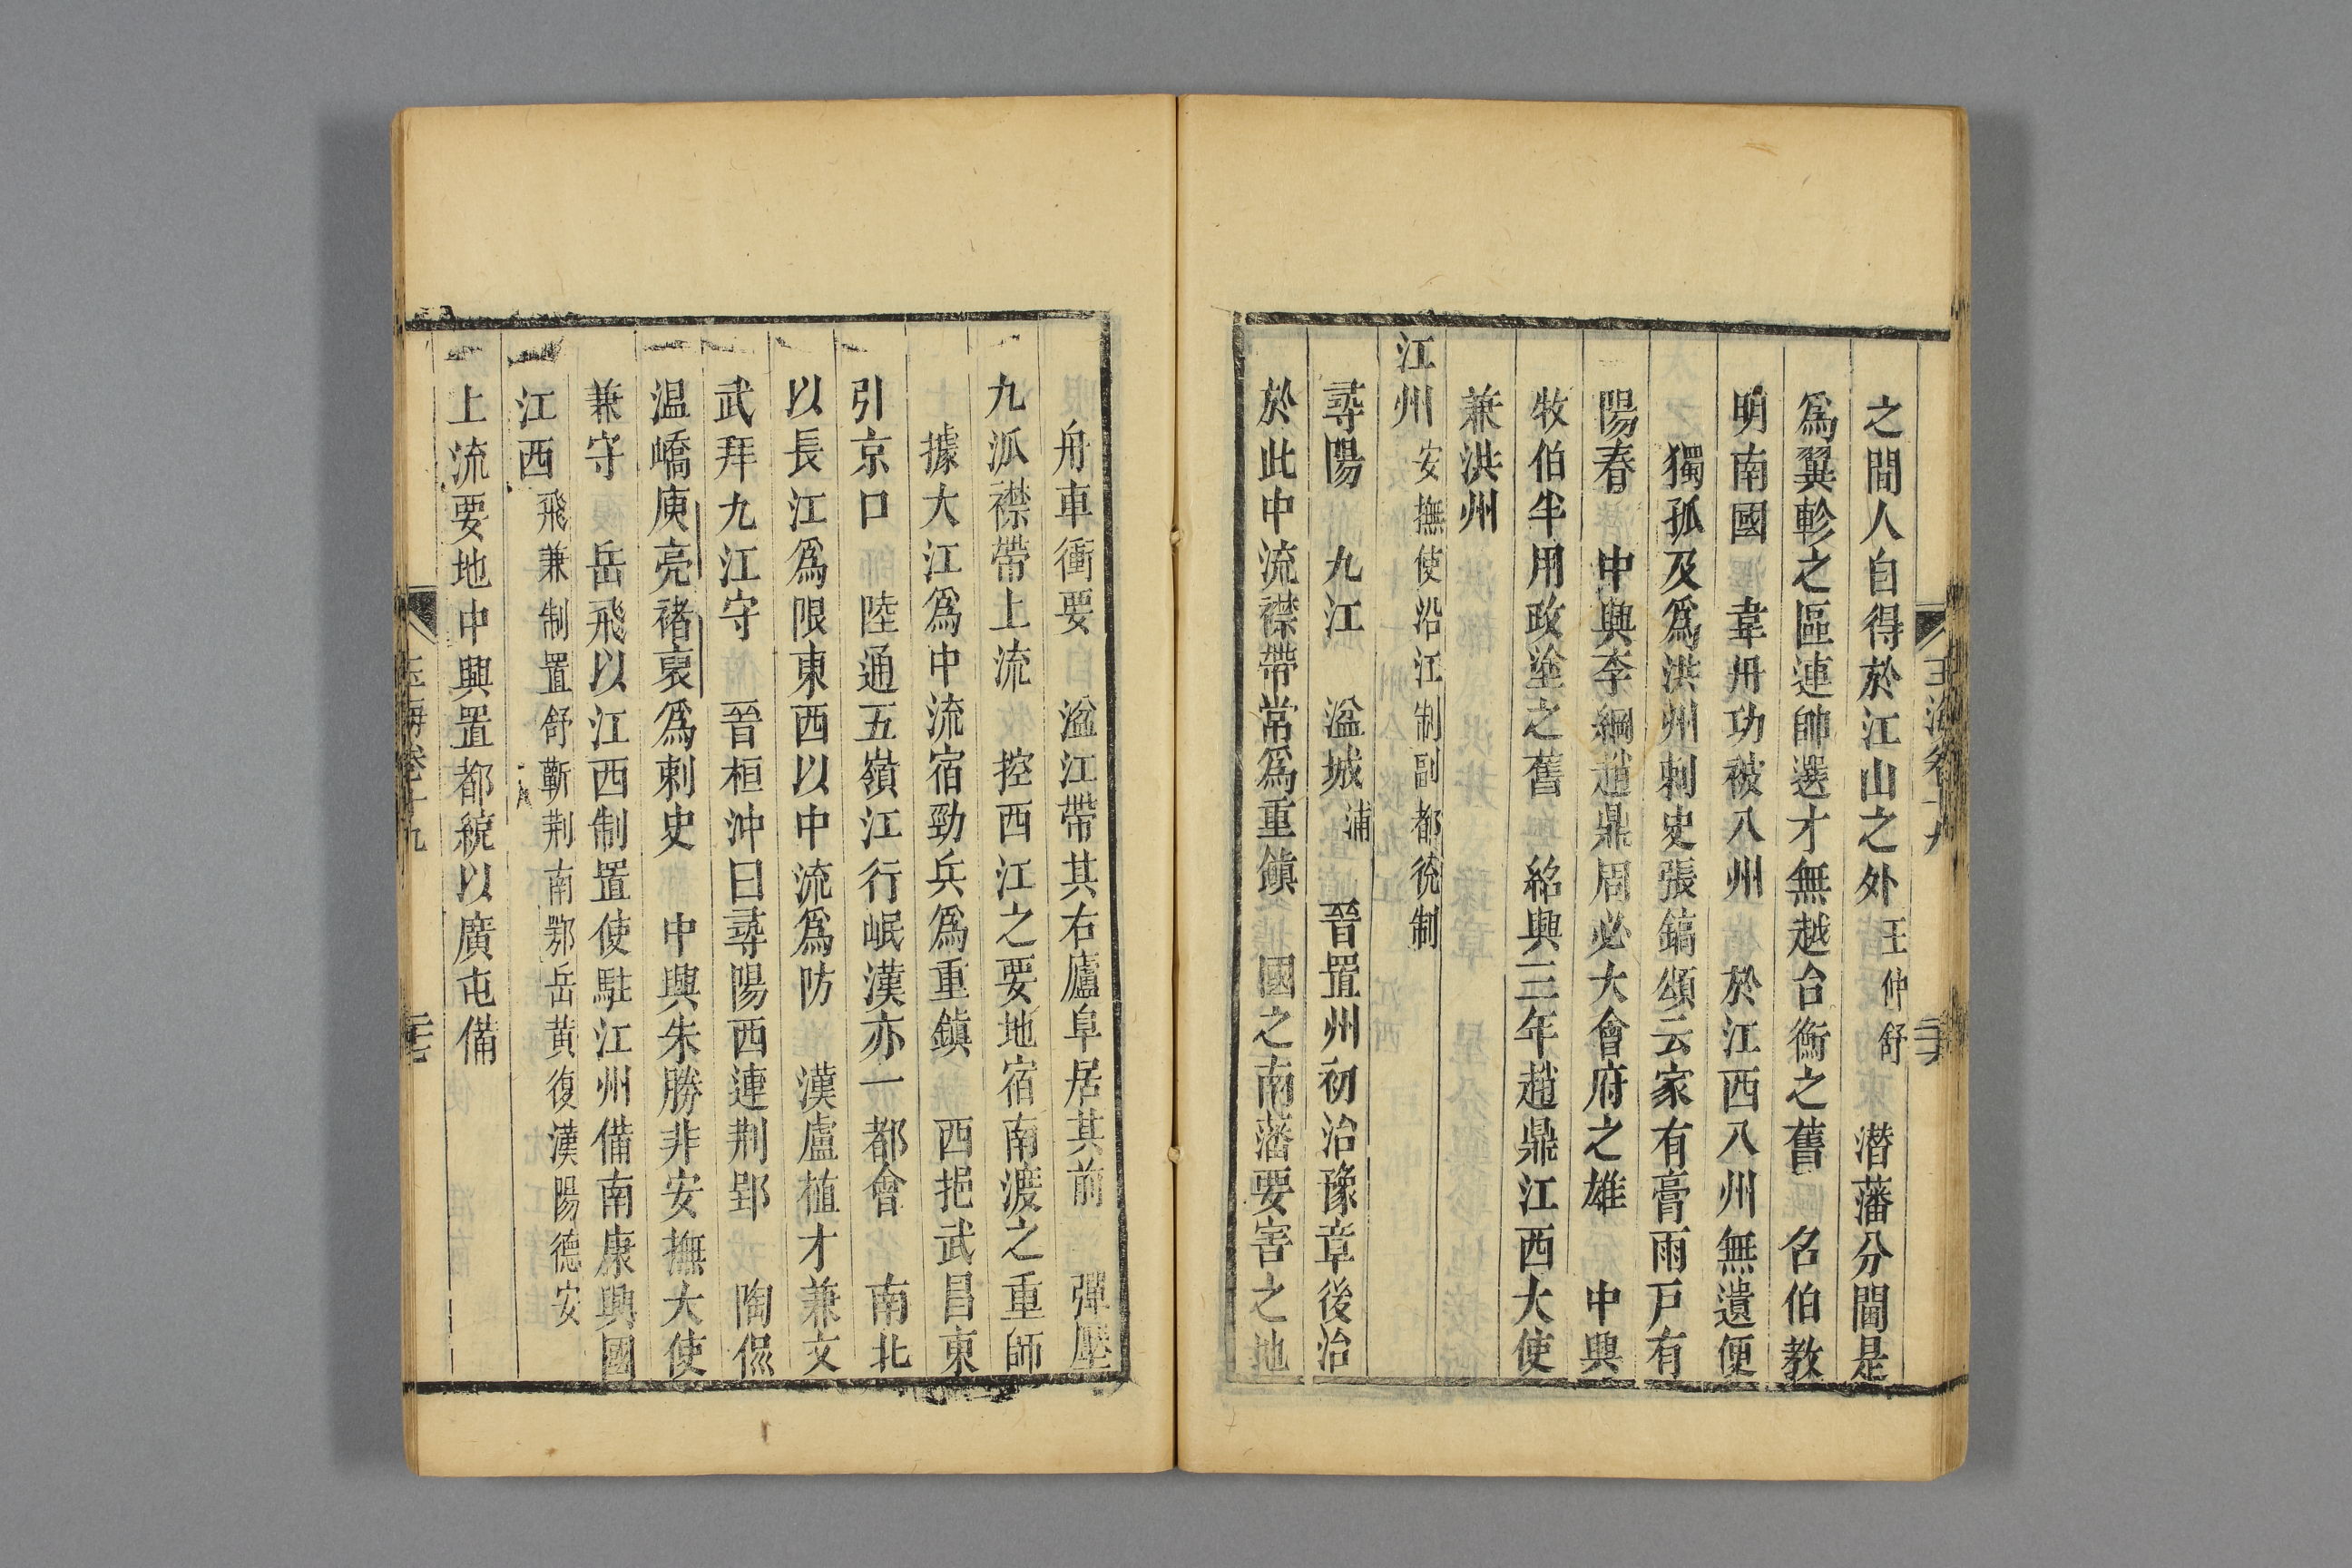 之間人自得於江山之外王仲舒　潜藩分閫是
爲翼軫之區連帥選才無越台衡之舊　名伯教
明南國　韋丹功被八州　於江西八州無遺便
獨孤及爲洪州刺史張鎬頌云家有膏雨戸有
陽春　中興李綱趙鼎周必大會府之雄　中興
牧伯半用政塗之舊　紹興三年趙鼎江西大使
兼洪州
江州安撫使沿江制副都統制
尋陽　九江　湓城浦　晉置州初治豫章後治
於此中流襟帶常爲重鎮　國之南藩要害之地
舟車衝要　湓江帶其右廬阜居其前　彈壓
九派襟帶上流　控西江之要地宿南渡之重師
據大江爲中流宿勁兵爲重鎮　西挹武昌東
引京口　陸通五嶺江行岷漢亦一都會　南北
以長江爲限東西以中流爲防　漢盧植才兼文
武拜九江守　晉桓沖曰尋陽西連荆郢　陶侃
温嶠庾亮褚裒爲刺史　中興朱勝非安撫大使
兼守　岳飛以江西制置使駐江州備南康興國
江西飛兼制置舒蘄荆南鄂岳黄復漢陽德安
上流要地中興置都統以廣屯備